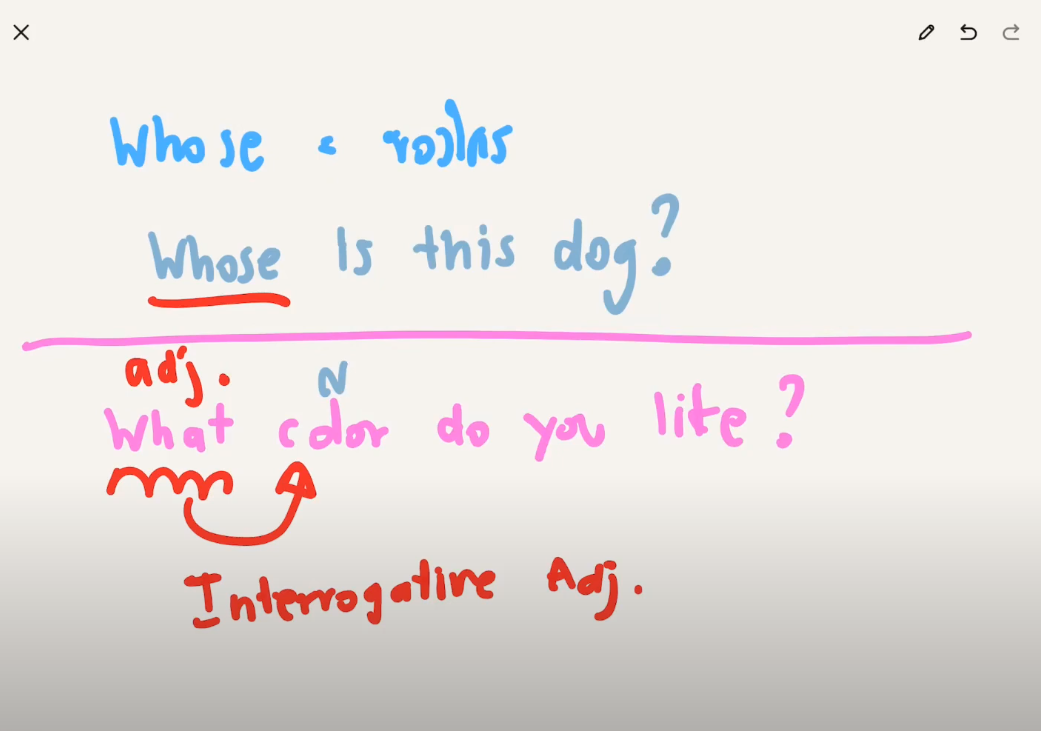 Whose = ของใคร
Whose Is this dog?
adj. N
What color do you like?
Interrogative Adj.